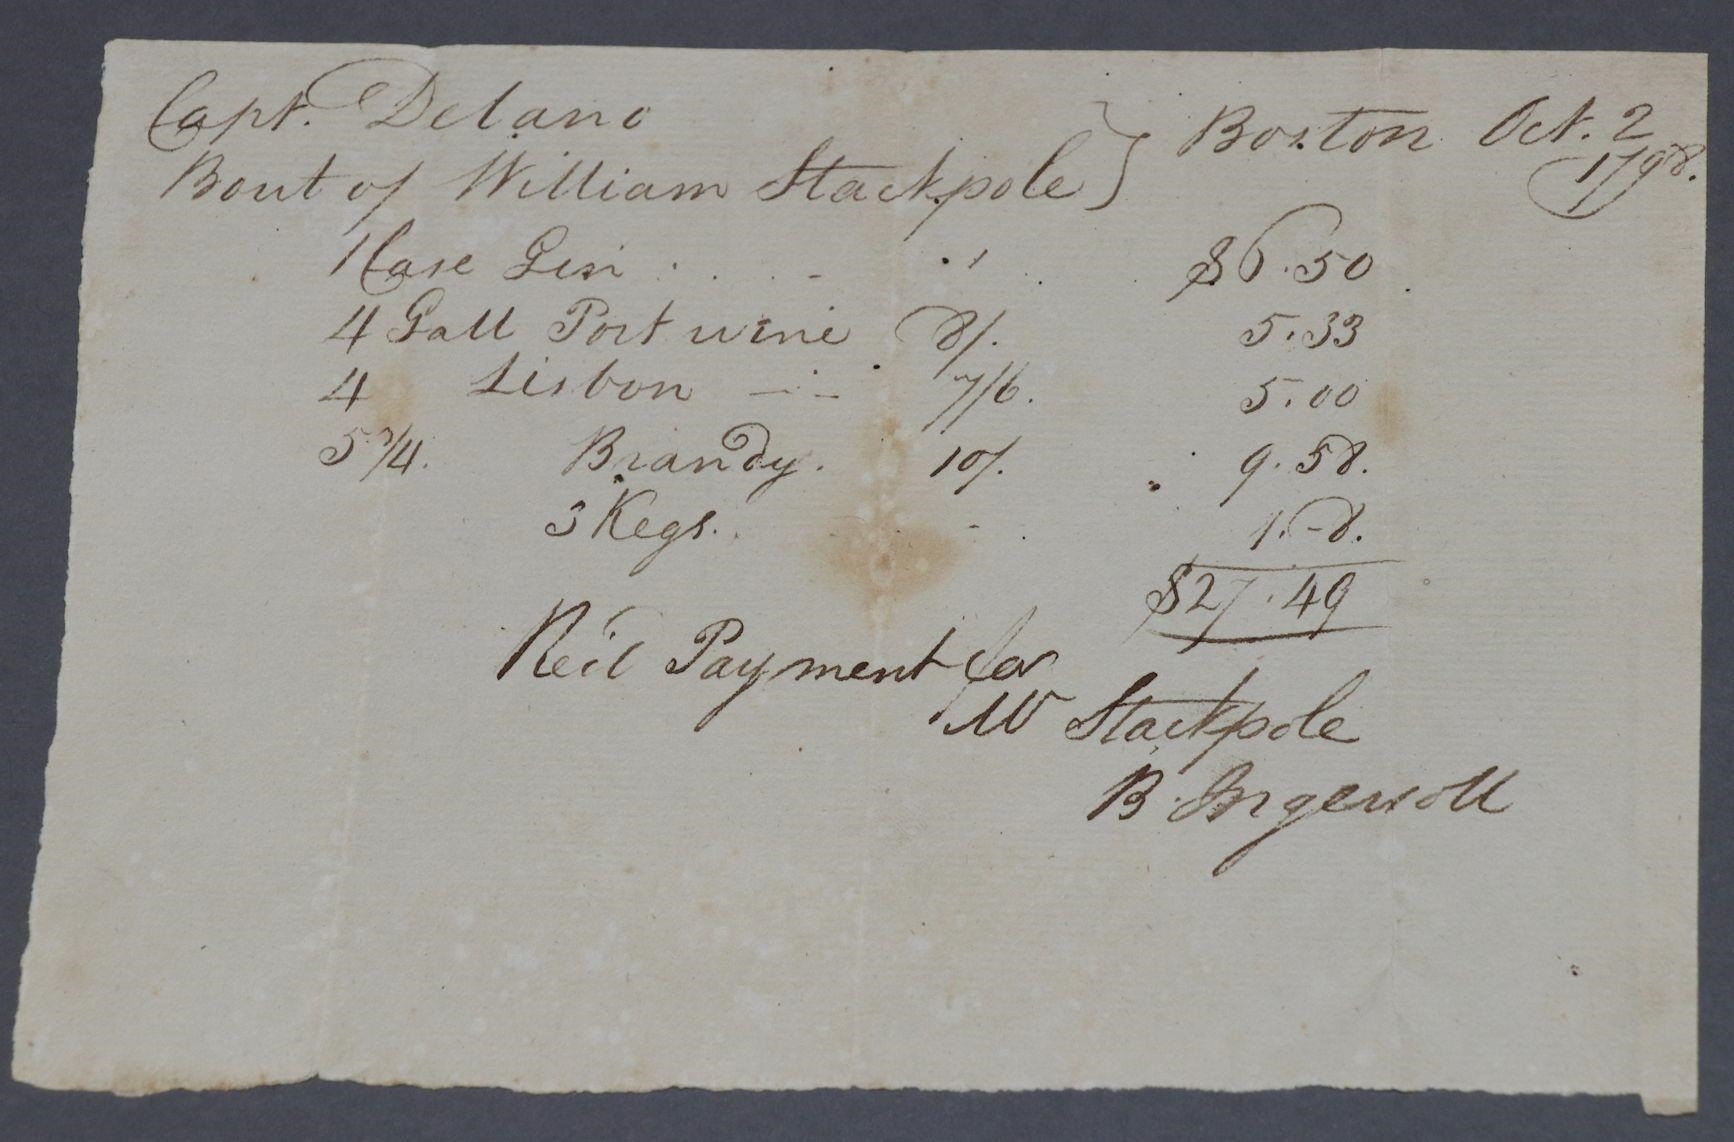 Capt. Delano
Bout of William Stackpole } Boston Oct. 2
1798.
1 Case Gin $6.50
4 Gall Port wine 8/. 5.33
4 Lisbon 7/6. 5.00
5 3/4. Brandy. 10/. 9.58.
3 Kegs. 1.-8.
$27.49
Rec'd Payment for
W Stackpole
B. Ingersoll